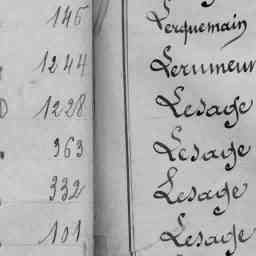 145 Lerquemain
1244 Lerumeur
1228 Lesage
363 Lesage
332 Lesage
101 Lesage